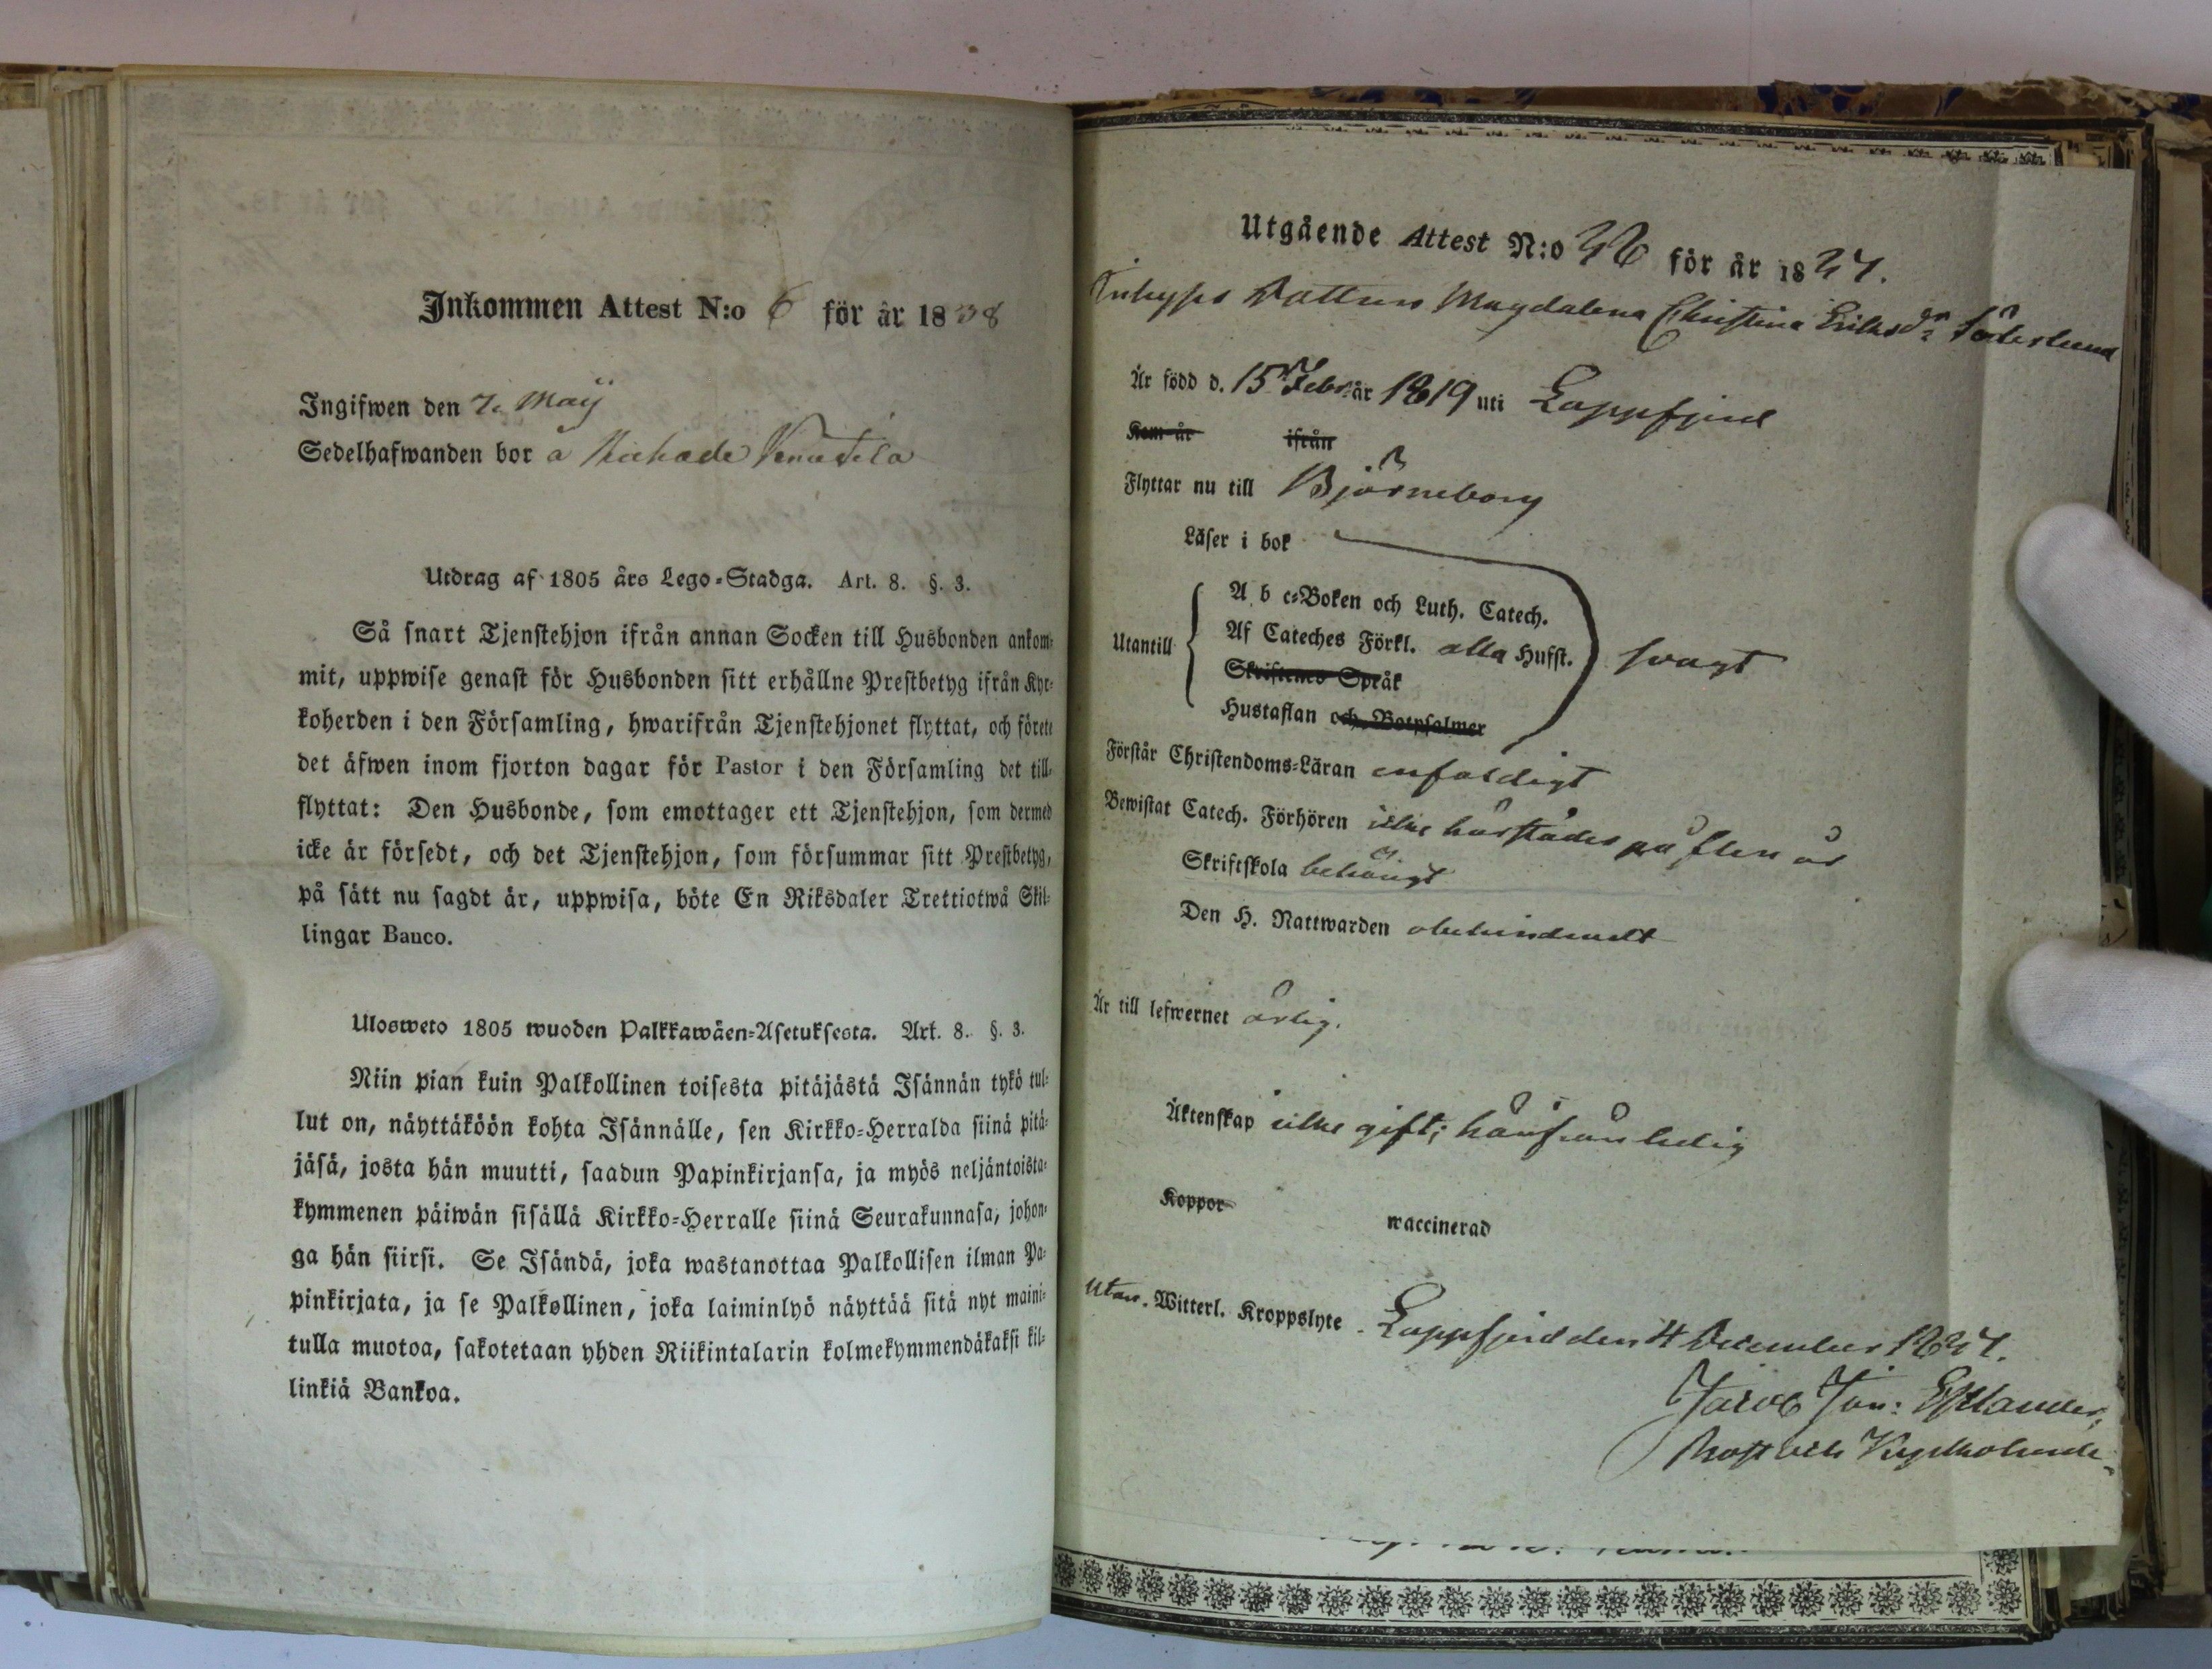 Inkommen Attest N:o 6 för år 1838
Ingifwen den 7. Maij
Sedelhafwanden bor å
Utdrag af 1805 års Lego-Stadga. Art. 8. §. 3.
Så snart Tjenstehjon ifrån annan Socken till Husbonden ankom-
mit, uppwise genast för Husbonden sitt erhållne Prestbetyg ifrån Kyr-
koherden i den Församling, hwarifrån Tjenstehjonet flyttat, och förete
det äfwen inom fjorton dagar för Pastor i den Församling det till-
flyttat: Den Husbonde, som emottager ett Tjenstehjon, som dermed
icke är försedt, och det Tjenstehjon, som försummar sitt Prestbetyg,
på sätt nu sagdt är, uppwisa, böte En Riksdaler Trettiotwå Skil-
lingar Banco.
Ulosweto 1805 wuoden Palkkawäen-Asetuksesta. Art. 8. §. 3.
Niin pian kuin Palkollinen toisesta pitäjästä Isännän tykö tul-
lut on, näyttäköön kohta Isännälle, sen Kirkko-Herralda siinä pitä-
jäsä, josta hän muutti, saadun Papinkirjansa, ja myös neljäntoista-
kymmenen päiwän sisällä Kirkko-Herralle siinä Seurakunnasa, johon-
ga hän siirsi. Se Isändä, joka wastanottaa Palkollisen ilman Pa-
pinkirjata, ja se Palkollinen, joka laiminlyö näyttää sitä nyt maini-
tulla muotoa, sakotetaan yhden Riikintalarin kolmekymmendäkaksi kil-
linkiä Bankoa.
Utgående Attest N:o för år 1837.
Inhyses Dottren Magdalena Christina Eriksdr Söderlund
Är född d. 15 Febr. år 1819 uti Lappfjerd
Kom år ifrån
Flyttar nu till Björneborg
Läser i bok
A b c-Boken och Luth. Catech.
Utantill Af Cateches Förkl. alla Hufst. svagt
Skriftenes Språk
Hustaflan och Botpsalmer
Förstår Christendoms-Läran enfaldigt
Bewistat Catech. Förhören icke härstädes på flere år
Skriftskola behörigt
Den H. Nattwarden obehindradt
Är till lefwernet ärlig.
Äktenskap icke gift; härifrån ledig
Koppor waccinerad
Utan Witterl. Kroppslyte. Lappfjerd den 4 December 1837.
Jacob Jon: Estlander,
Prost och Kyrkoherde.